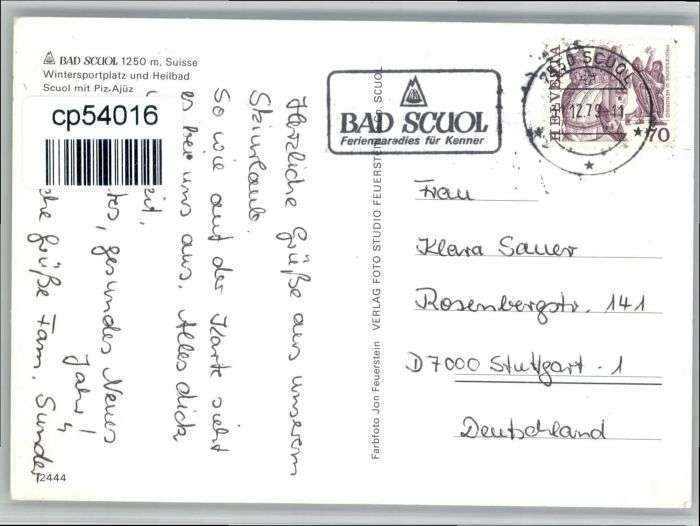 BAD SCUOL 1250 m, Suisse
Wintersportplatz und Heilbad
Scuol mit Piz.Ajüz
cp54016
Herzliche Grüße aus unserem
Skiurlaub.
So wie auf der Karte sieht
es bei uns aus. Alles dick
gesundes Neues
Jahr!
Grüße Fam. Sunder
2444
Farbfoto Jon Feuerstein VERLAG FOTO STUDIO FEUERSTEIN SCUOL
BAD SCUOL
Ferienparadies für Kenner
7550 SCUOL
12.79-11
HELVETIA
70
Frau
Klara Sauer
Rosenbergstr. 141
D7000 Stuttgart - 1
Deutschland